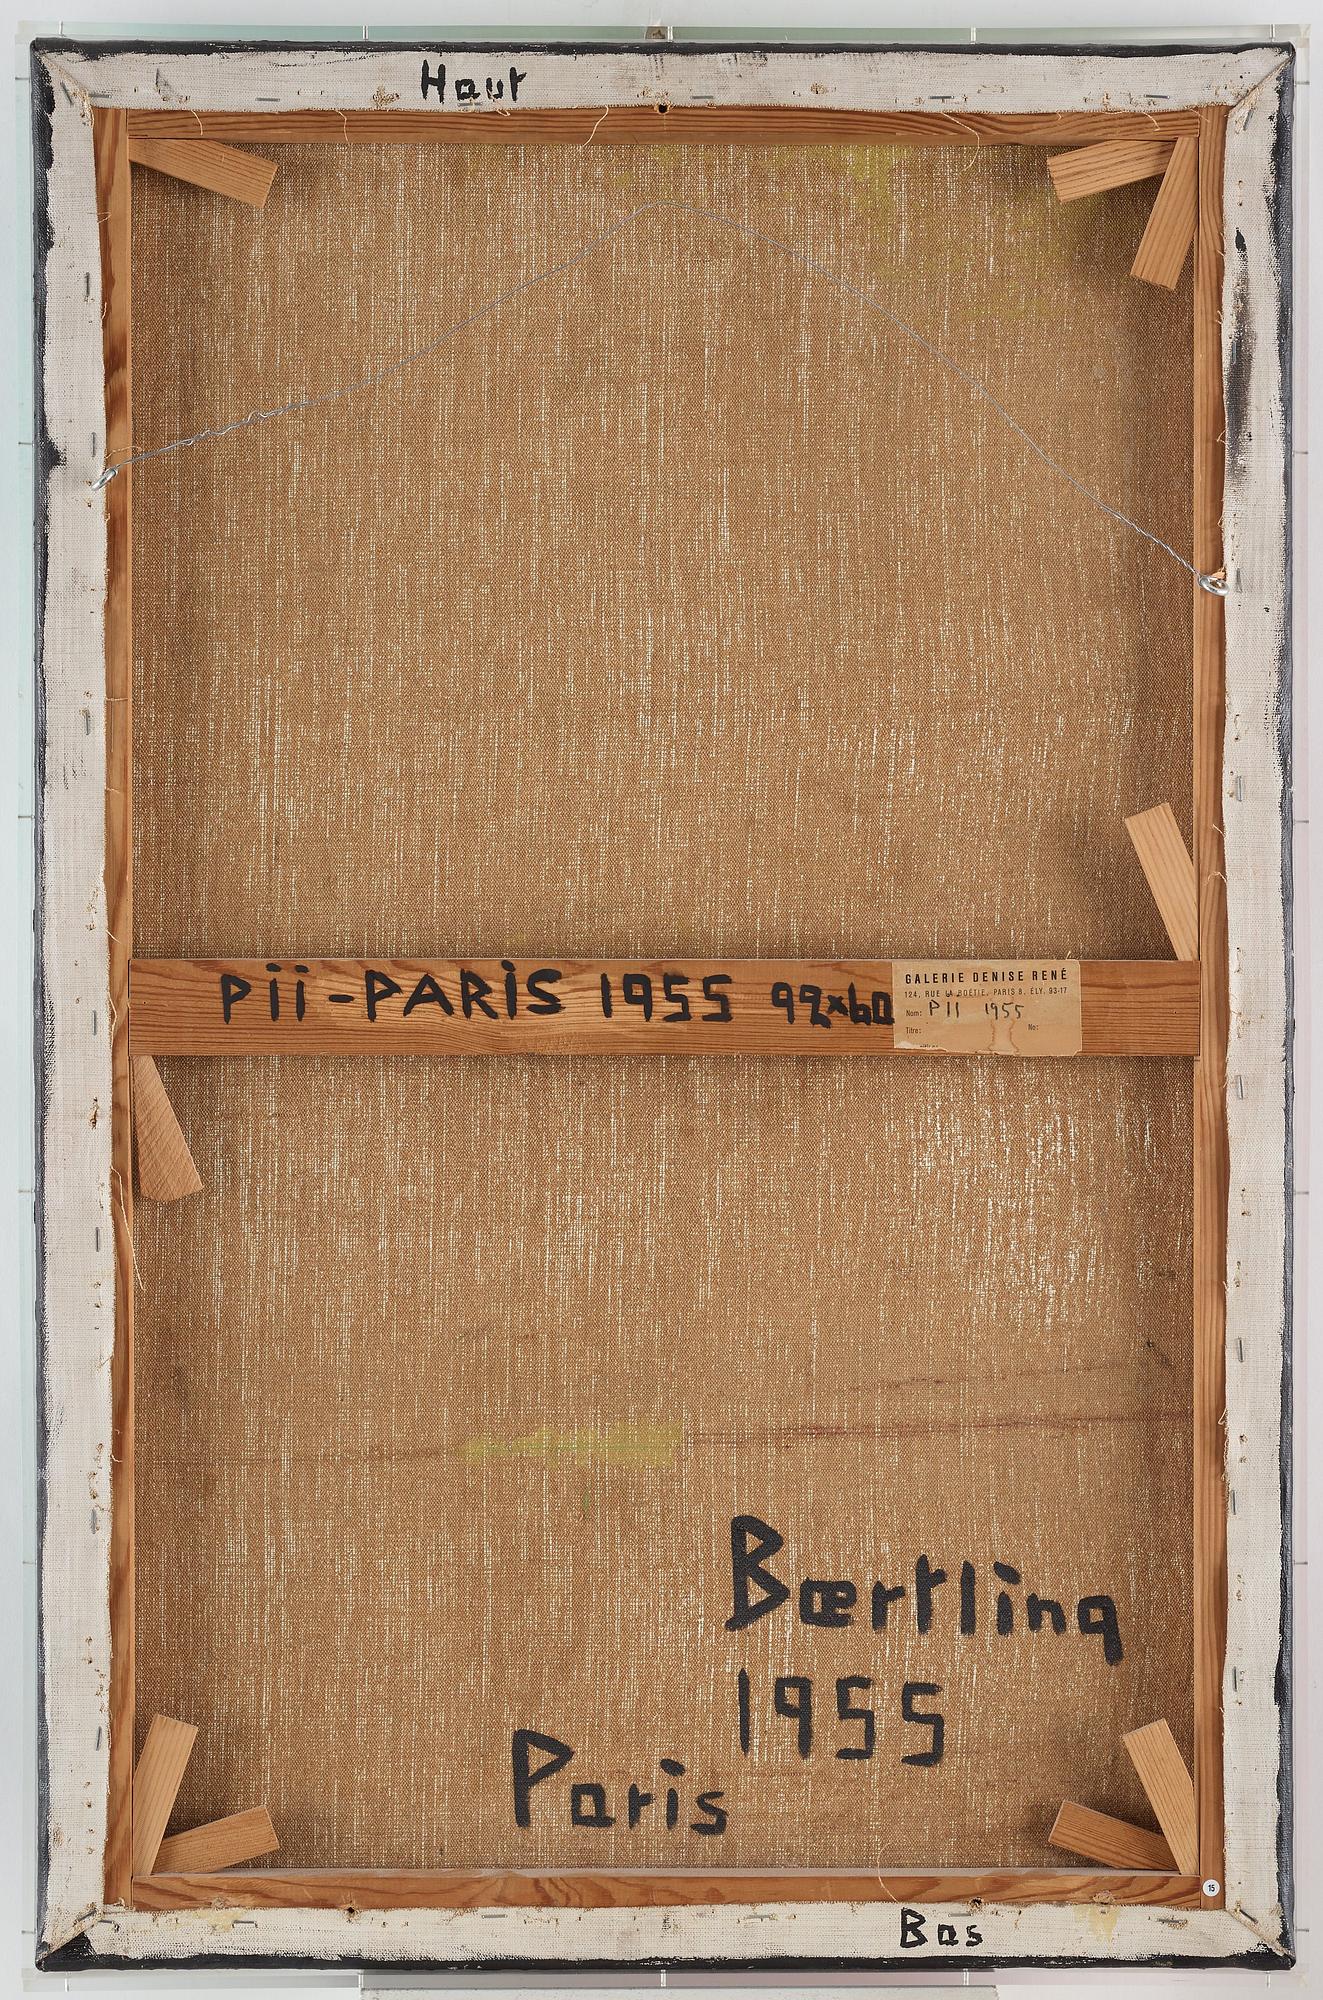 Haut
Pii-PARiS 1955 92x60
GALERIE DENISE RENÉ
124, RUE LA BOÉTIE, PARIS 8. ÉLY. 93-17
Nom: P11 1955
Titre: No:
Bœrtling
1955
Paris
15
Bas